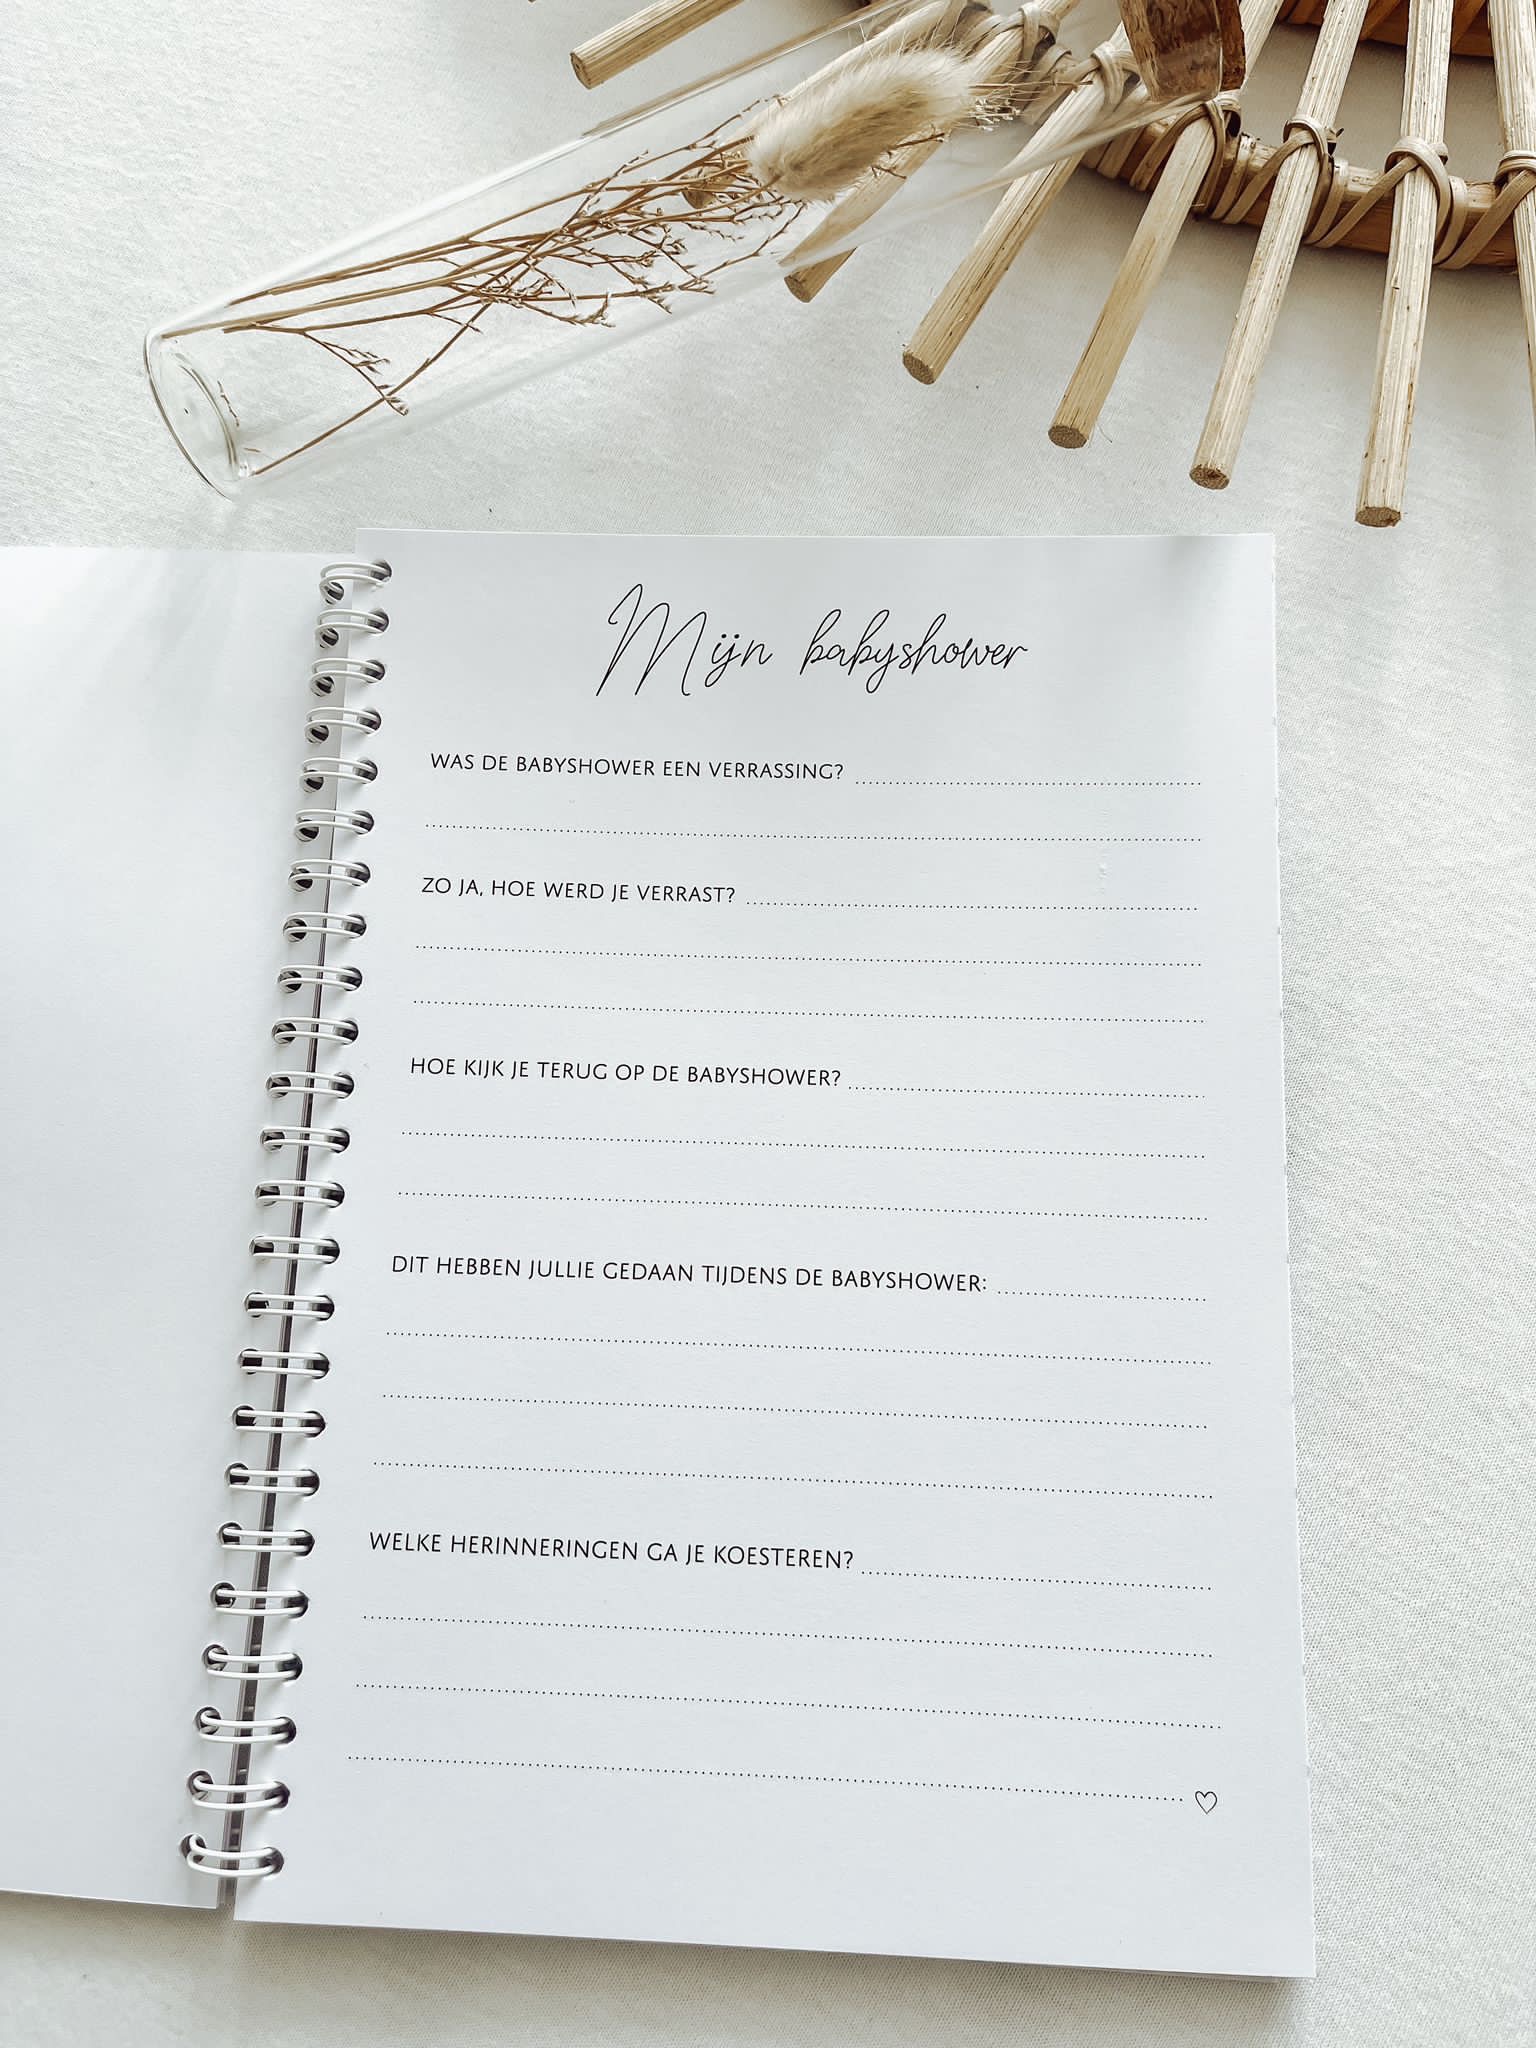 Mijn babyshower
WAS DE BABYSHOWER EEN VERRASSING?
ZO JA, HOE WERD JE VERRAST?
HOE KIJK JE TERUG OP DE BABYSHOWER?
DIT HEBBEN JULLIE GEDAAN TIJDENS DE BABYSHOWER:
WELKE HERINNERINGEN GA JE KOESTEREN?